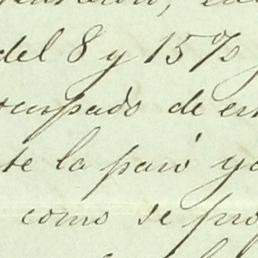 del 8 y 15%
ocupado de es
te la pasó ya
como se pro